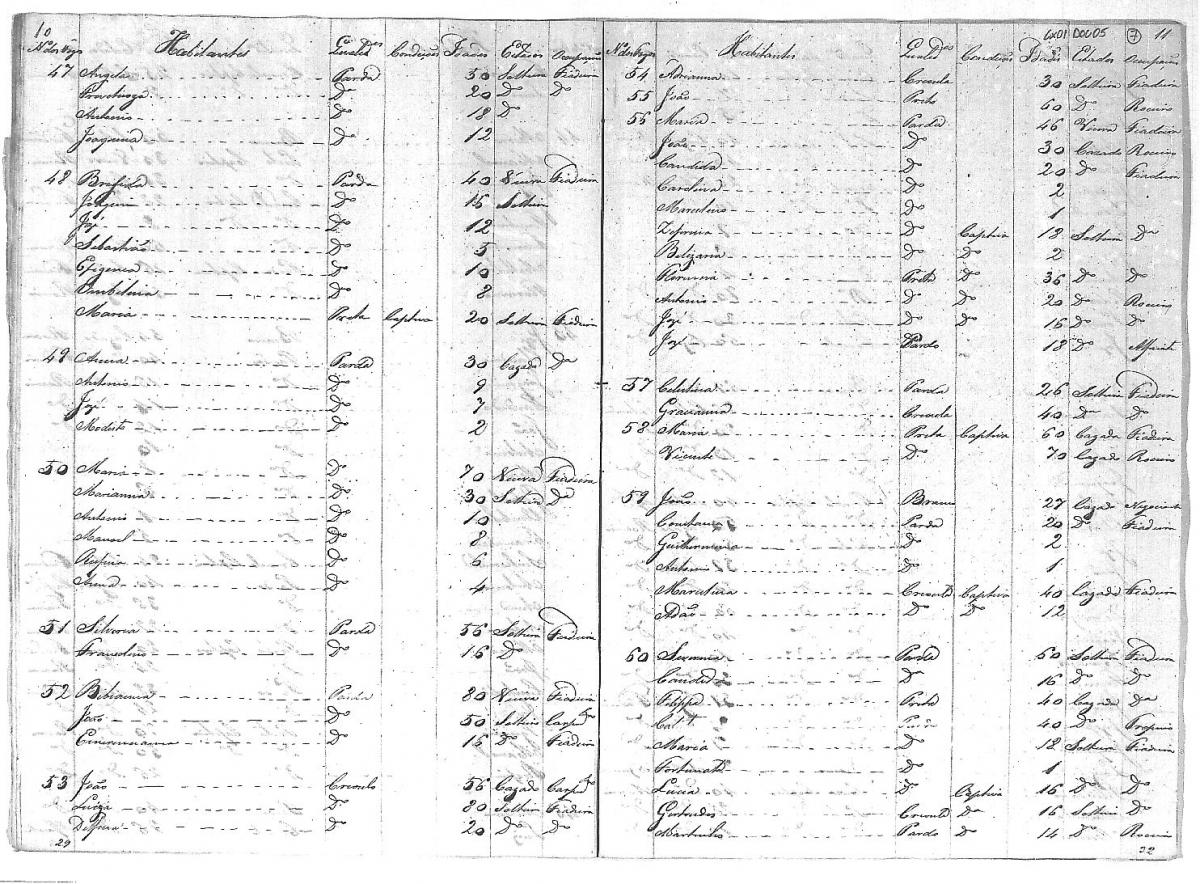 10
Nos dos Fogos Habitantes Qualides Condições Idades Estados Ocupações
47 Angela Parda 30 Solteira Fiadeira
Do 20 Do Do
Antonio Do 18 Do
Joaquina Do 12
48 Brigida Parda 40 Viuva Fiadeira
Joaquim Do 15 Solteiro
Jozé Do 12
Sebastião Do 5
Efigenia Do 10
Umbelina Do 8
Maria Preta Captiva 20 Solteira Fiadeira
49 Anna Parda 30 Cazada Da
Antonio Do 9
Jozé Do 7
Modesto Do 2
50 Maria Da 70 Viuva Fiadeira
Marianna Da 30 Solteira Da
Antonio Do 10
Manoel Do 8
Rufina Do 6
Do 4
51 Silveria Parda 55 Solteira Fiadeira
Francelino Do 15 Do
52 Bibianna Parda 80 Viuva Fiadeira
João Do 50 Solteiro Carpo
Do 15 Do Fiadeira
53 João Creoulo 56 Cazado Carpo
Luiza Do 80 Solteira Fiadeira
Delfina Do 20 Do Do
29
CX01 DOC05 7 11
Nos dos Fogos Habitantes Qualides Condições Idades Estados Ocupações
54 Adrianna Creoula 30 Solteira Fiadeira
55 João Preto 60 Do Roceiro
56 Maria Parda 46 Viuva Fiadeira
João Do 30 Cazado Roceiro
Candida Do 20 Do Fiadeira
Carolina Do 2
Marcelino Do 1
Zeferina Do Captiva 12 Solteira Da
Belizaria Do Do 2
Preta Do 36 Do Do
Antonio Do Do 20 Do Roceiro
Jozé Do Do 15 Do Do
Jozé Pardo 18 Do Alfaiate
57 Celestina Parda 26 Solteira Fiadeira
Gracianna Creoula 40 Do Do
58 Maria Preta Captiva 60 Cazada Fiadeira
Vicente Do 70 Cazado Roceiro
59 João Branco 27 Cazado Negociante
Constança Parda 20 Do Fiadeira
Guilhermina Do 2
Antonio Do 1
Marcelina Creoula Captiva 40 Cazada Fiadeira
Adão Do Do 12
60 Parda 50 Solteira Fiadeira
Candida Da 15 Do Do
Filippa Preta 40 Cazada Da
40 Do
Maria Do 18 Solteira Fiadeira
Fortunato Do 1
Lucia Da Captiva 16 Do Do
Gertrudes Creoula Da 16 Solteira Do
Martinho Pardo Do 14 Do Roceiro
22